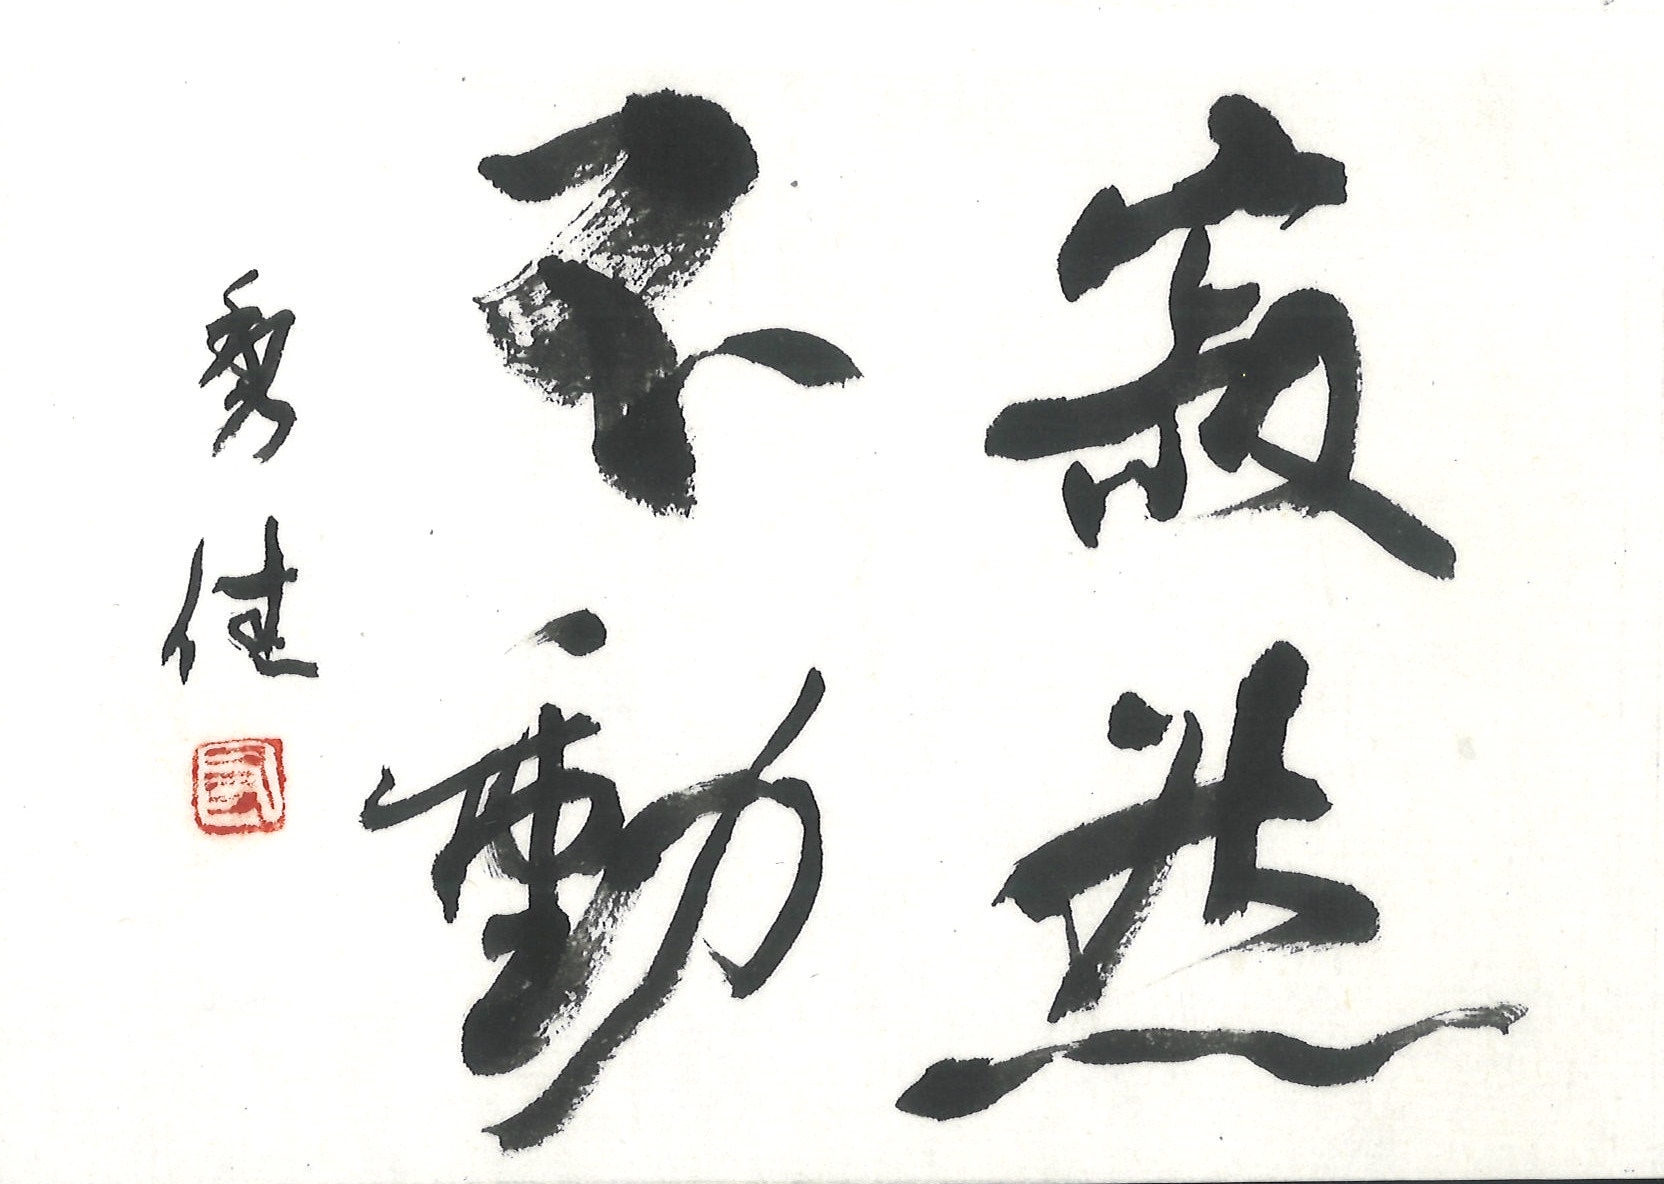 寂然
不動
秀佳